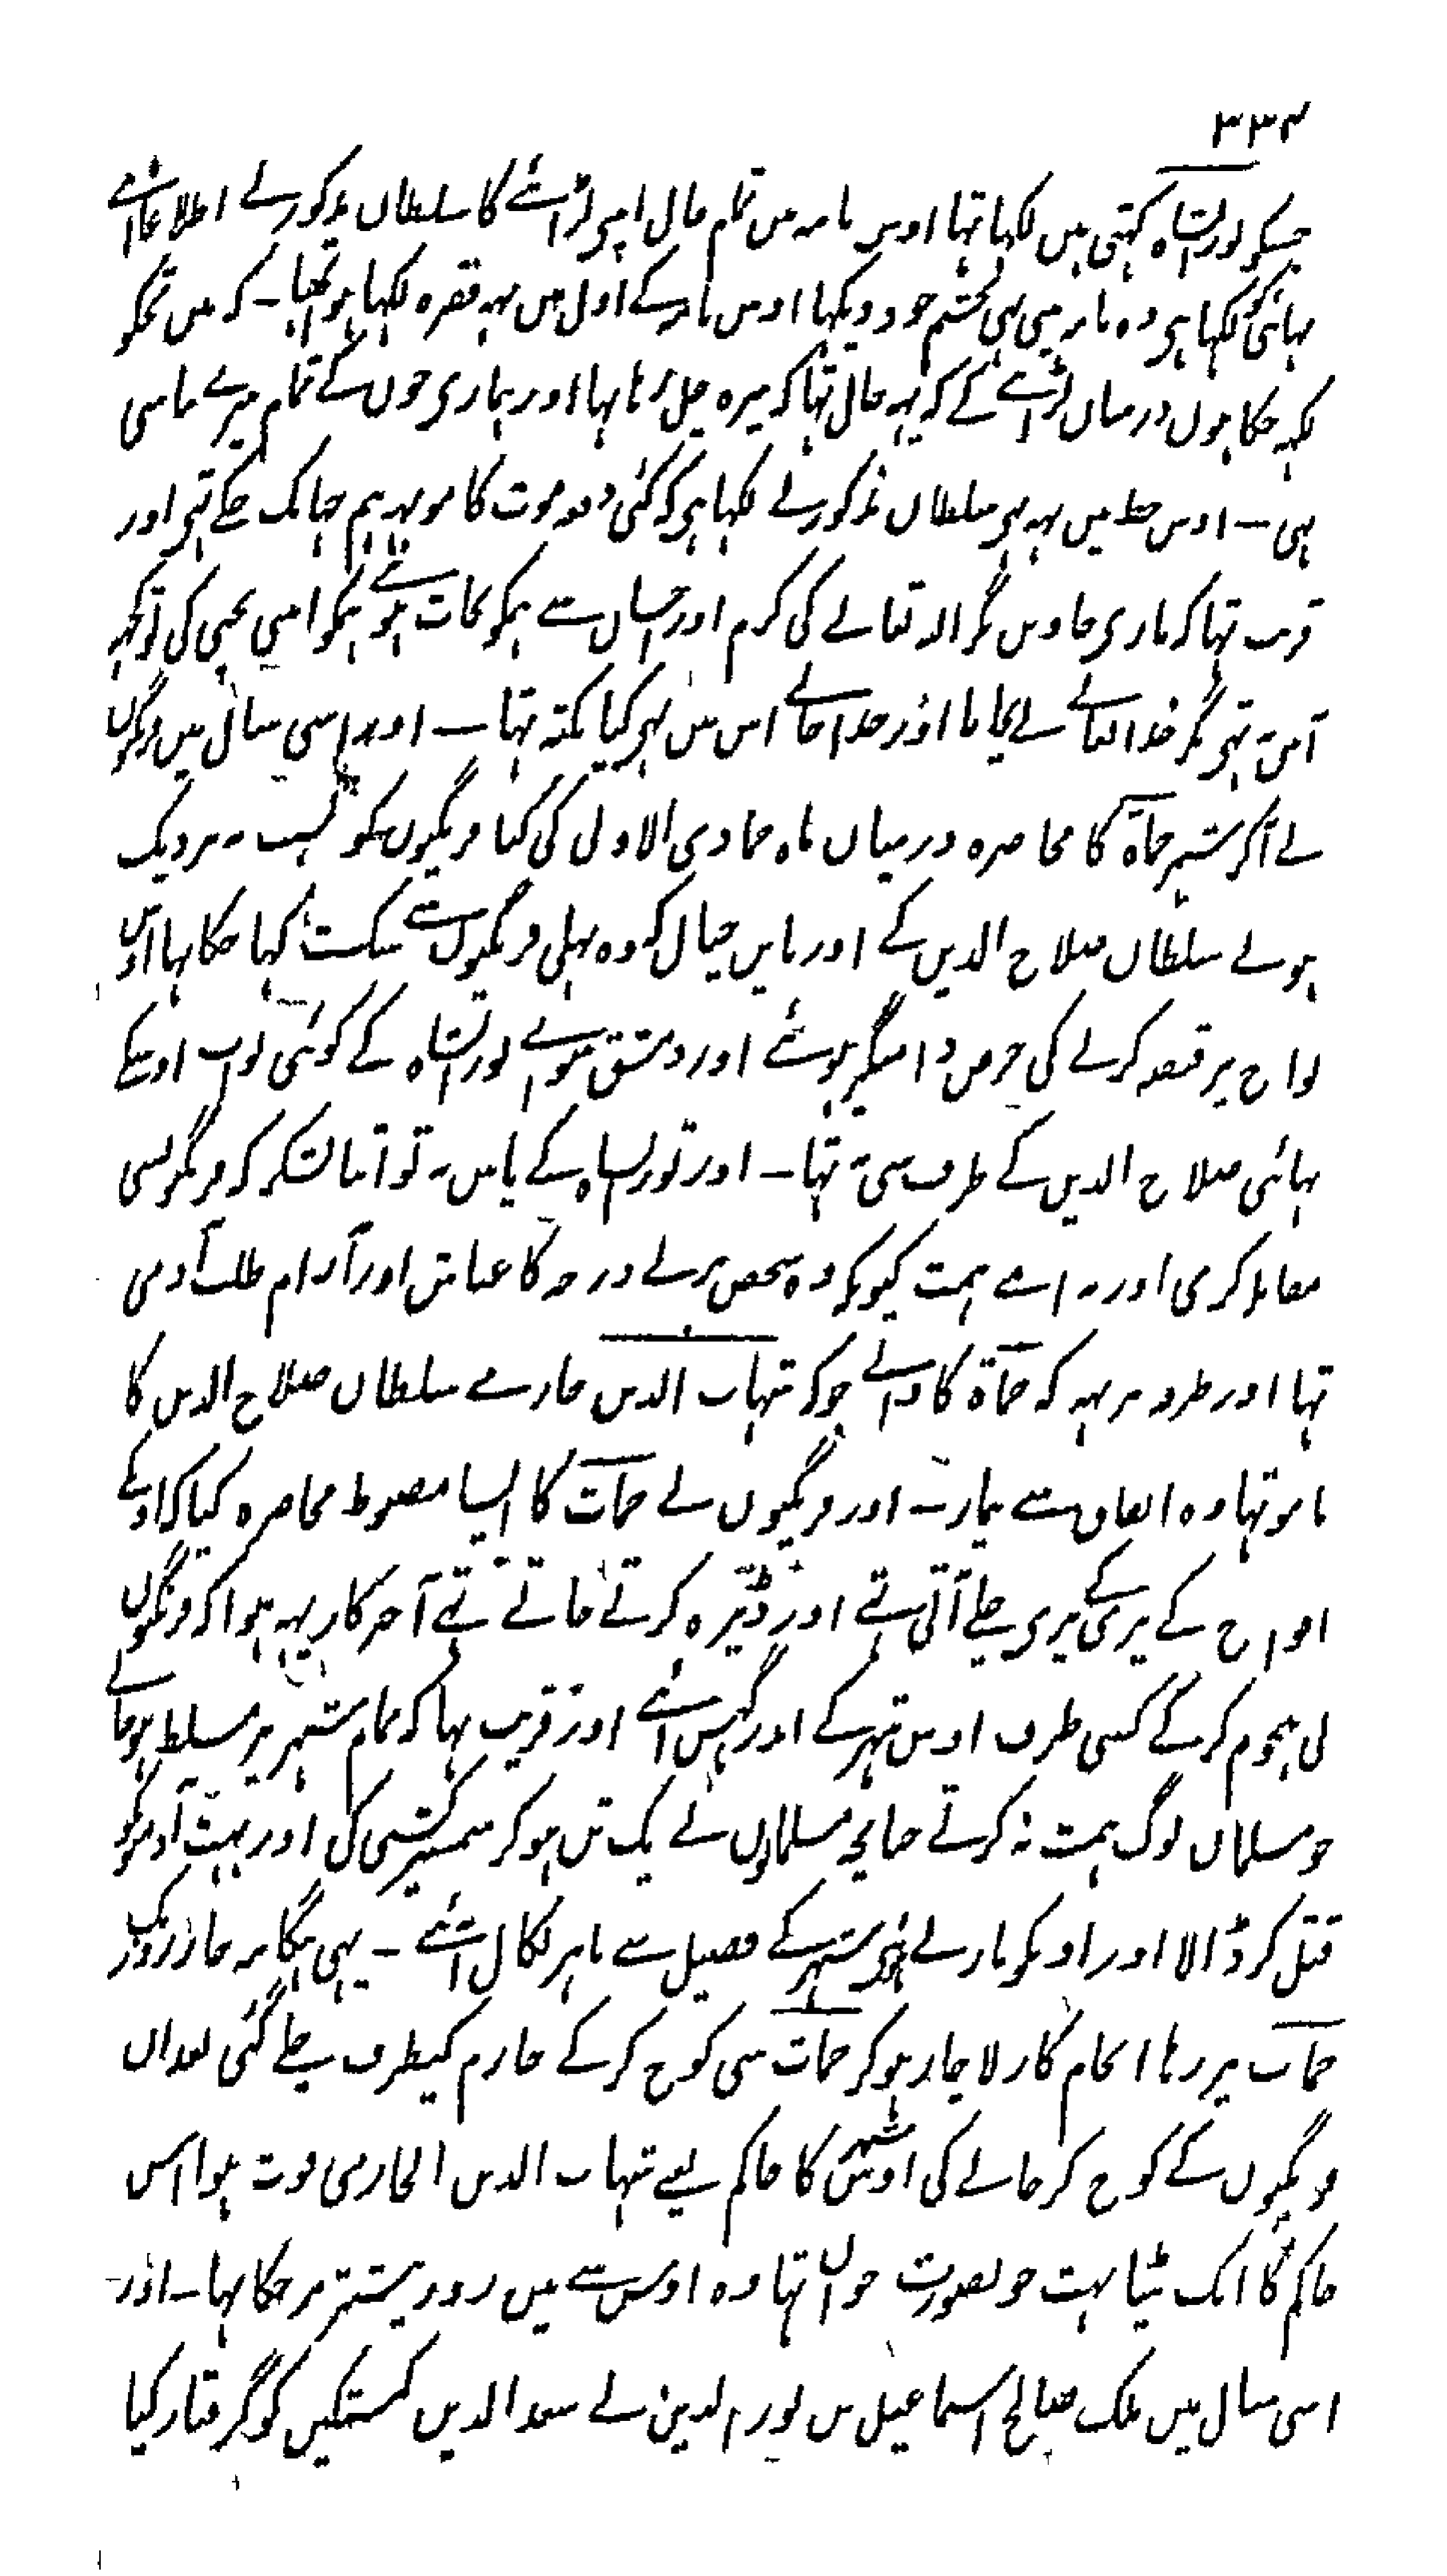 ۳۳۴
جسکو تورانشاہ کہتی ہیں لکہا تہا اوس نامہ میں تمام حال اپنی لڑائے کا سلطان مذکور نے اطلاعاً اپنے
بہائیکو لکہا ہی وہ نامہ میں نی بچشم خود دیکہا اوس نامہ کے اول میں یہہ فقرہ لکہا ہوا تہا ۔ کہ میں تجکو
کہہ چکا ہوں درمیان لڑائے کے کہ یہہ حال تہا کہ نیزہ چل رہا تہا اور ہماری خون کے تمام نیزے پیاسی
ہی ۔ اوس خط میں یہہ بہی سلطان مذکور نے لکہا ہی کہ کئی دفعہ موت کا مونہہ ہم جہانک چکے تہی اور
قریب تہا کہ ماری جاویں مگر اللہ تعالے کی کرم اور احسان سے ہمکو نجات ہوئے ہمکو اپنی بچنی کی توکچہہ
امید نہ تہی مگر خدا تعالے نے بچایا اور خدا جانے اس میں بہی کیا نکتہ تہا ۔ اور اسی سال میں فرنگیوں
نے آکر شہر حماۃ کا محاصرہ درمیان ماہ جمادی الاول کی کیا فرنگیوں کو بسبب نہ نزدیک
ہونے سلطان صلاح الدین کے اور باین خیال کہ وہ پہلی فرنگیوں سے شکست کہا چکا تہا اون
نواح پر قبضہ کرنے کی حرص دامنگیر ہوئے اور دمشق میں سوائے تورانشاہ کے کوئی نایب اوسکے
بہائی صلاح الدین کے طرف سی نہ تہا ۔ اور تورانشاہ کے پاس نہ تو اتنا لشکر کہ فرنگونسی
مقابلہ کری اور نہ اسے ہمت کیونکہ وہ شخص پرلے درجہ کا عیاش اور آرام طلب آدمی
تہا اور طرہ پر یہہ کہ حماۃ کا والے جو کہ شہاب الدین حارمے سلطان صلاح الدین کا
مامو تہا وہ اتفاق سے بیمار ۔ اور فرنگیوں نے حمات کا ایسا مضبوط محاصرہ کیا کہ اونکے
افواج کے پری کے پری چلے آتی تہے اور ڈیرہ کرتے جاتے تہے آخر کار یہہ ہوا کہ فرنگیوں
نی ہجوم کر کے کسی طرف اوس شہر کے اندر گہس آئے اور قریب تہا کہ تمام شہر پر مسلط ہوجاتے
جو مسلمان لوگ ہمت نہ کرتے چنانچہ مسلمانوں نے یک تن ہو کر شمشیر کشی کی اور بہت آدمیونکو
قتل کر ڈالا اور اونکو مارتے ہوئے شہر کے فصیل سے باہر نکال آئے ۔ یہی ہنگامہ چار روز تک
حمات پر رہا انجام کار لاچار ہو کر حمات سی کوچ کر کے حارم کیطرف چلے گئی بعد ان
فرنگیوں کے کوچ کر جانے کی اوس شہر کا حاکم یعنے شہاب الدین الحارمی فوت ہوا اس
حاکم کا ایک بیٹا بہت خوبصورت جوان تہا وہ اوس سے تین روز پیشتر مر چکا تہا ۔ اور
اسی سال میں ملک صالح اسماعیل بن نور الدین نے سعد الدین کمشتکین کو گرفتار کیا